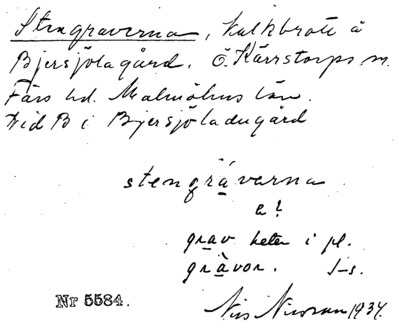 Stengraverna, kalkbrott å
Bjersjölagård. Ö. Kärrstorps sn.
Färs hd. Malmöhus län.
Vid B i Bjersjöladugård
stengrävarna
a!
grav heter i pl.
grävor. J-s.
Nr 5584.
Nils 1934.